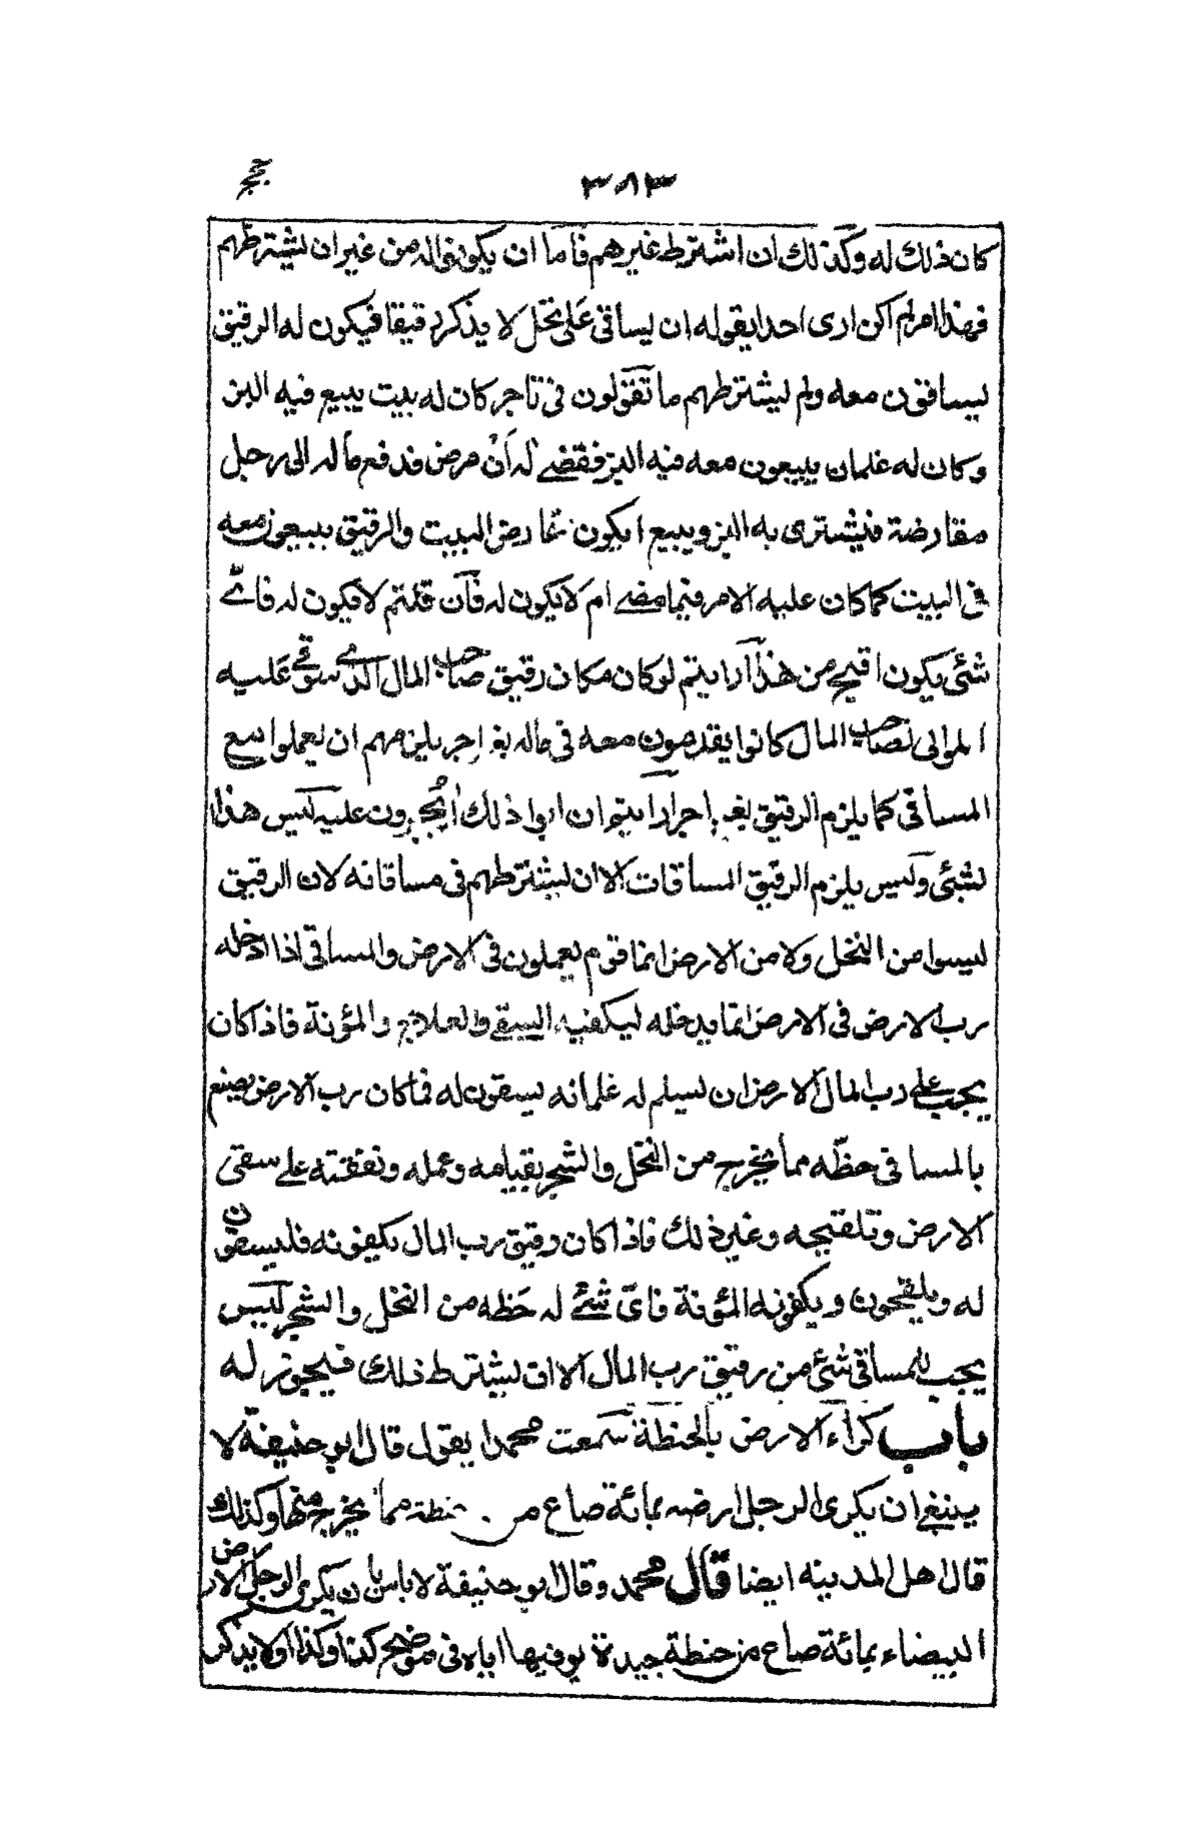 ٣٨٣
حجج
كان ذلك له وكذلك ان اشترط غيرهم فاما ان يكونوا له من غير ان يشترطهم
فهذا امر لم اكن ارى احدا يقوله ان يساقى على نخل لا يذكر رقيقا فيكون له الرقيق
يساقون معه ولم يشترطهم ما تقولون فى تاجر كان له بيت يبيع فيه البز
وكان له غلمان يبيعون معه فيه البز فقضى له ان مرض فدفع ماله الى رجل
مقارضة فيشترى به البز ويبيع ايكون للمقارض البيت والرقيق يبيعون معه
فى البيت كما كان عليه الامر فيما مضى ام لا يكون له فان قلتم لا يكون له فاىّ
شئى يكون اقبح من هذا ارايتم لو كان مكان رقيق صاحب المال الذى سوقى عليه
الموالى لصاحب المال كانوا يقدمون معه فى ماله بغير اجر يلزمهم ان يعملوا مع
المساقى كما يلزم الرقيق بغير اجر ارايتم ان ابوا ذلك ايجبرون عليه ليس هذا
لشئى وليس يلزم الرقيق المساقات الا ان يشترطهم فى مساقاته لان الرقيق
ليسوا من النخل ولا من الارض انما قوم يعملون فى الارض والمساقى اذا ادخله
رب الارض فى الارض انما يدخله ليكفيه السقى والعلاج والمؤنة فاذا كان
يجب على رب المال الارض ان يسلم له غلمانه يسقون له فما كان رب الارض يصنع
بالمساقى حظّه مما يخرج من النخل والشجر بقيامه وعمله ونفقته على سقى
الارض وتلقيحه وغير ذلك فاذا كان رقيق رب المال يكفونه فليسقون
له ويلقحون ويكفونه المؤنة فاىّ شئى له حظه من النخل والشجر ليس
يجب للمساقى شئى من رقيق رب المال الا ان يشترط ذلك فيجوز له
باب كراء الارض بالحنطة سمعت محمدا يقول قال ابو حنيفة لا
ينبغى ان يكرى الرجل ارضه بمائة صاع من حنطة مما يخرج منها وكذلك
قال اهل المدينه ايضا قال محمد وقال ابو حنيفة لا باس بان يكرى الرجل الارض
البيضاء بمائة صاع من حنطة جيدة يوفيها اياه فى موضع كذا وكذا ولا يذكر